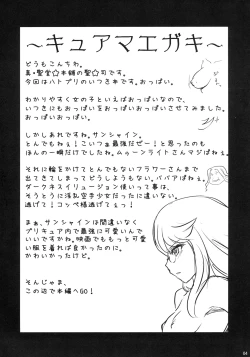 ～キュアマエガキ～
どうもこんちわ。
真・聖堂☆本舗の聖☆司です。
今回はハトプリのいつき本です。おっぱい。
わかりやすく女の子といえばおっぱいなので、
いつきにもおっぱいをおっぱいさせてみました。
おっぱいおっぱい。
しかしあれですね。サンシャイン。
とんでもねぇ！こいつぁ最強だぜー！と思ったのも
ほんの一瞬だけでしたね。ムゥーンライトさんマジぱねぇ。
それに輪をかけてとんでもないフラワーさんまで
出てきてしまってどうしようもない。ババアぱねぇ。
ダークネスイリュージョン使いって事は、
そうとうに浅乱空手少女だったに違いない。
逃げて！コッペ様逃げてぇ！
まぁ、サンシャインは間違いなく
プリキュア内で最強に可愛いんで
いいですかね。映画でももっと可愛
い服を着れば良かったのに。
かわいかったけど。
そんじゃま、
この辺で本編へGO！